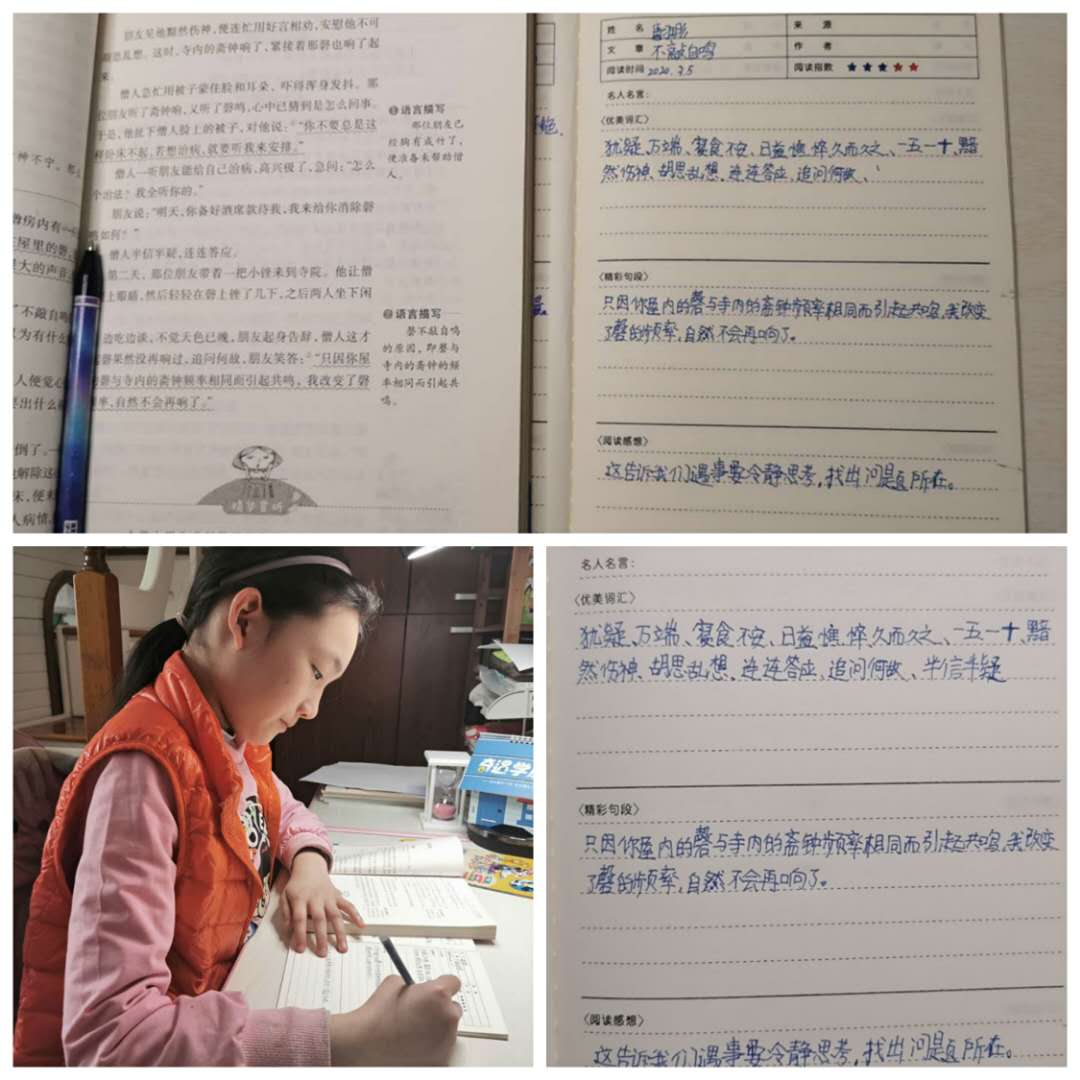 朋友见他黯然伤神，便连忙用好言相劝，安慰他不可
胡思乱想。这时，寺内的斋钟响了，紧接着那磬也响了起
来。
僧人急忙用被子蒙住脸和耳朵、吓得浑身发抖。那
位朋友听了斋钟响，又听了磬鸣，心中已猜到是怎么回事。
于是，他扯下僧人脸上的被子，对他说：“你不要总是这
样卧床不起，若想治病，就要听我来安排。”
僧人一听朋友能给自己治病，高兴极了，急问：“怎么
个治法？我全听你的。”
朋友说：“明天，你备好酒席款待我，我来给你消除磬
鸣如何？”
僧人半信半疑，连连答应。
第二天，那位朋友带着一把小锉来到寺院。他让僧
上眼睛，然后轻轻在磬上锉了几下，之后两人坐下闲
边吃边谈，不觉天色已晚，朋友起身告辞，僧人这才
磬果然没再响过，追问何故，朋友笑答：“只因你屋
的磬与寺内的斋钟频率相同而引起共鸣，我改变了磬
率，自然不会再响了。”
①语言描写
那位朋友已
经胸有成竹了，
便准备来帮助僧
人。
②语言描写
磬不敲自鸣
的原因，即磬与
寺内的斋钟的频
率相同而引起共
鸣。
神不宁。那
僧房内有一
屋里的磬
最大的声音
“不敲自鸣
以为有什
人便觉心
要出什么
倒了。一
解除这
床，便
人病情
姓 名
来 源
文 章 不敲自鸣
作 者
阅读时间 2020.3.5
阅读指数 ★★★★★
名人名言：
〈优美词汇〉
犹疑、万端、寝食不安、日益憔悴、久而久之、一五一十、黯
然伤神、胡思乱想、连连答应、追问何故、
〈精彩句段〉
只因你屋内的磬与寺内的斋钟频率相同而引起共鸣，我改变
了磬的频率，自然不会再响了。
〈阅读感想〉
这告诉我们遇事要冷静思考，找出问题所在。
奇迹学
名人名言：
〈优美词汇〉
犹疑、万端、寝食不安、日益憔悴、久而久之、一五一十、黯
然伤神、胡思乱想、连连答应、追问何故、半信半疑
〈精彩句段〉
只因你屋内的磬与寺内的斋钟频率相同而引起共鸣，我改变
了磬的频率，自然不会再响了。
〈阅读感想〉
这告诉我们遇事要冷静思考，找出问题所在。